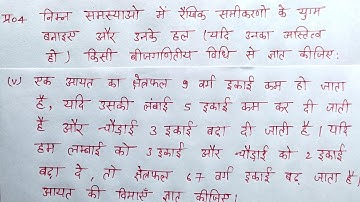 प्र०4 निम्न समस्याओं में रैखिक समीकरणों के युग्म
बनाइए और उनके हल (यदि उनका अस्तित्व
हो) किसी बीजगणितीय विधि से ज्ञात कीजिए:
(v) एक आयत का क्षेत्रफल 9 वर्ग इकाई कम हो जाता
है, यदि उसकी लंबाई 5 इकाई कम कर दी जाती
है और चौड़ाई 3 इकाई बढा दी जाती है। यदि
हम लम्बाई को 3 इकाई और चौड़ाई को 2 इकाई
बढा दे, तो क्षेत्रफल 67 वर्ग इकाई बढ़ जाता है।
आयत की विमाएँ ज्ञात कीजिए।